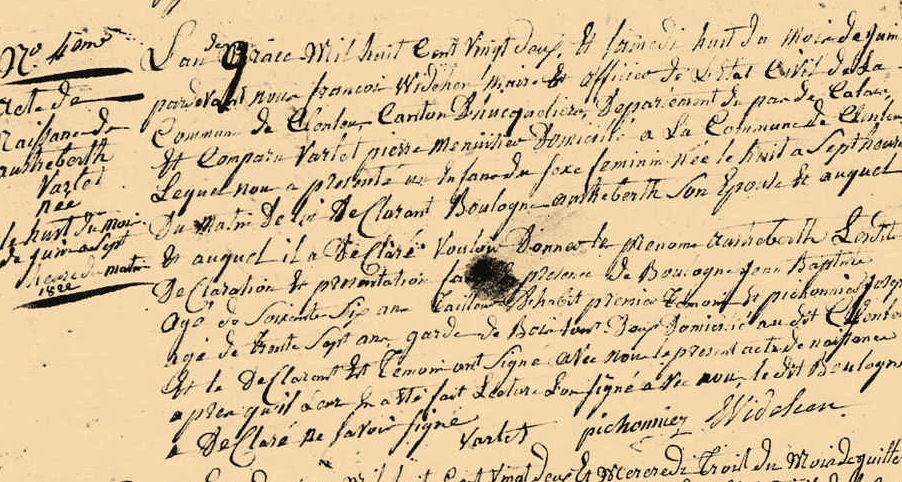 No 4eme
Acte de
Naissance de
austreberth
Varlet
née
le huit du mois
de juin a sept
heure du matin
1822
L'an de Grace Mil huit Cent Vingt deux, Et samedi huit du mois de juin
pardevant nous francois Widehen Maire Et officier de L'Etat Civil de La
Commune de Clenleu, Canton D'hucqueliere, Departement du pas de Calais,
Et Comparu Varlet pierre Menuisier Domicilié a La Commune de Clenleu
Lequel nou a presenté un Enfant du sexe feminin née le huit a Sept heure
Du Matin De lui DeClarant Boulogne austreberth Son Epouse Et auquel
Et auquel il a DeClaré Vouloir Donner le prenome austreberth Lesdite
DeClaration Et presentation presence de Boulogne jean Baptiste
agé de Soixante Six ans Tailleur D'habit premier Temoin Et pichonnier josep
agé de trente Sept ans garde de Bois tous Deux Domicilié au dit Clenleu
Et le DeClarant Et Temoin ont Signé avec nou le present acte de naissance
apres qu'il a été fait Lecture L'on signé avec nou, le dit Boulogne
a DeClaré ne savoir signé
Varlet pichonnier Widehen
Cent Vingt deux Et Mercredi Trois du Mois de juillet